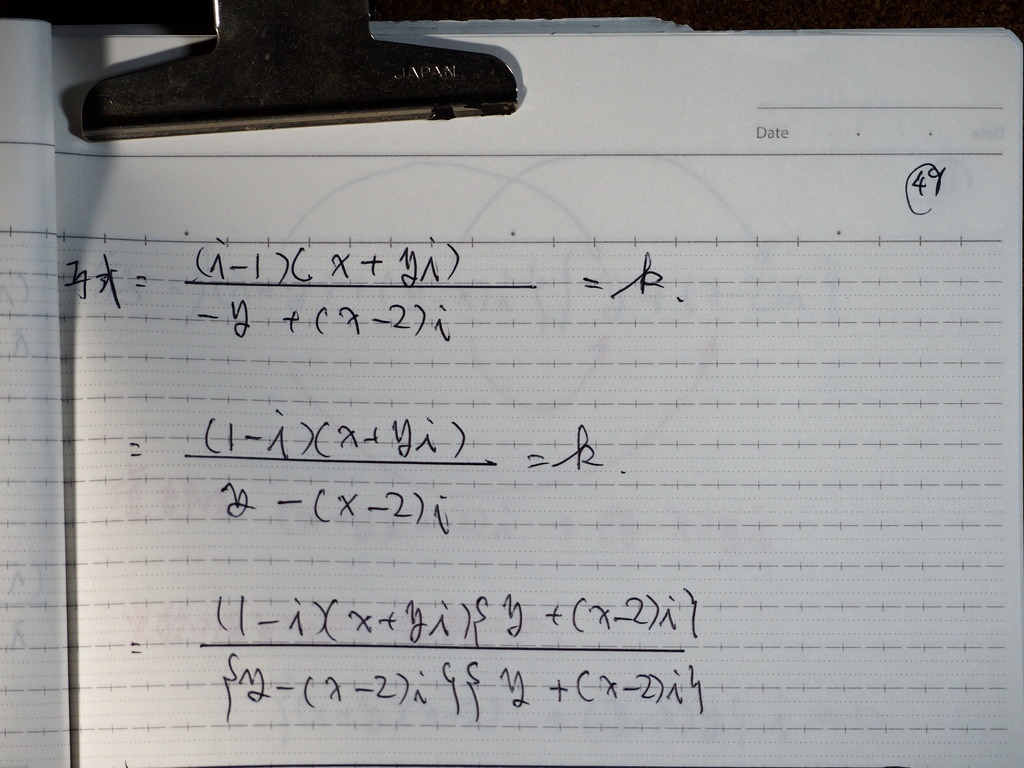 JAPAN
Date
49
与式 = \frac{(i-1)(x+yi)}{-y+(x-2)i} = k.
= \frac{(1-i)(x+yi)}{y-(x-2)i} = k.
= \frac{(1-i)(x+yi)\{y+(x-2)i\}}{\{y-(x-2)i\}\{y+(x-2)i\}}